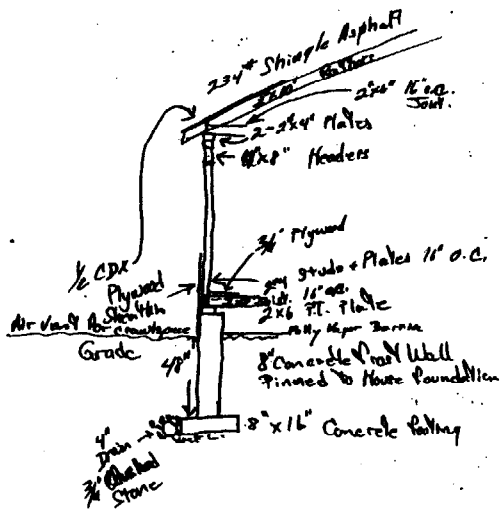 234# Shingle Asphalt
2"x10" Rafters
2"x6" 16" O.C.
Joist.
2-2"x4" Plates
"x8" Headers
3/4" Plywood
1/2 CDX
Plywood
2x4 Studs + Plates 16" O.C.
16" O.C.
2x6 P.T. Plate
Air Vent for crawlspace
Poly Vapor Barrier
Grade
48"
8" Concrete Frost Wall
Pinned to House Foundation
8" x 16" Concrete Footing
4"
Drain
3/4" Crushed
Stone